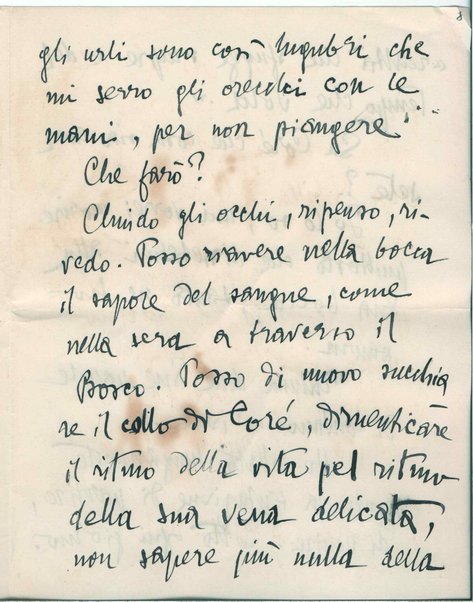 8
gli urli sono così lugubri che
mi serro gli orecchi con le
mani, per non piangere"
Che farò?
Chiudo gli occhi, ripenso, ri-
vedo. Posso riavere nella bocca
il sapore del sangue, come
nella sera a traverso il
Bosco. Posso di nuovo succhia
re il collo di Coré, dimenticare
il ritmo della vita pel ritmo
della sua vena delicata,
non sapere più nulla della